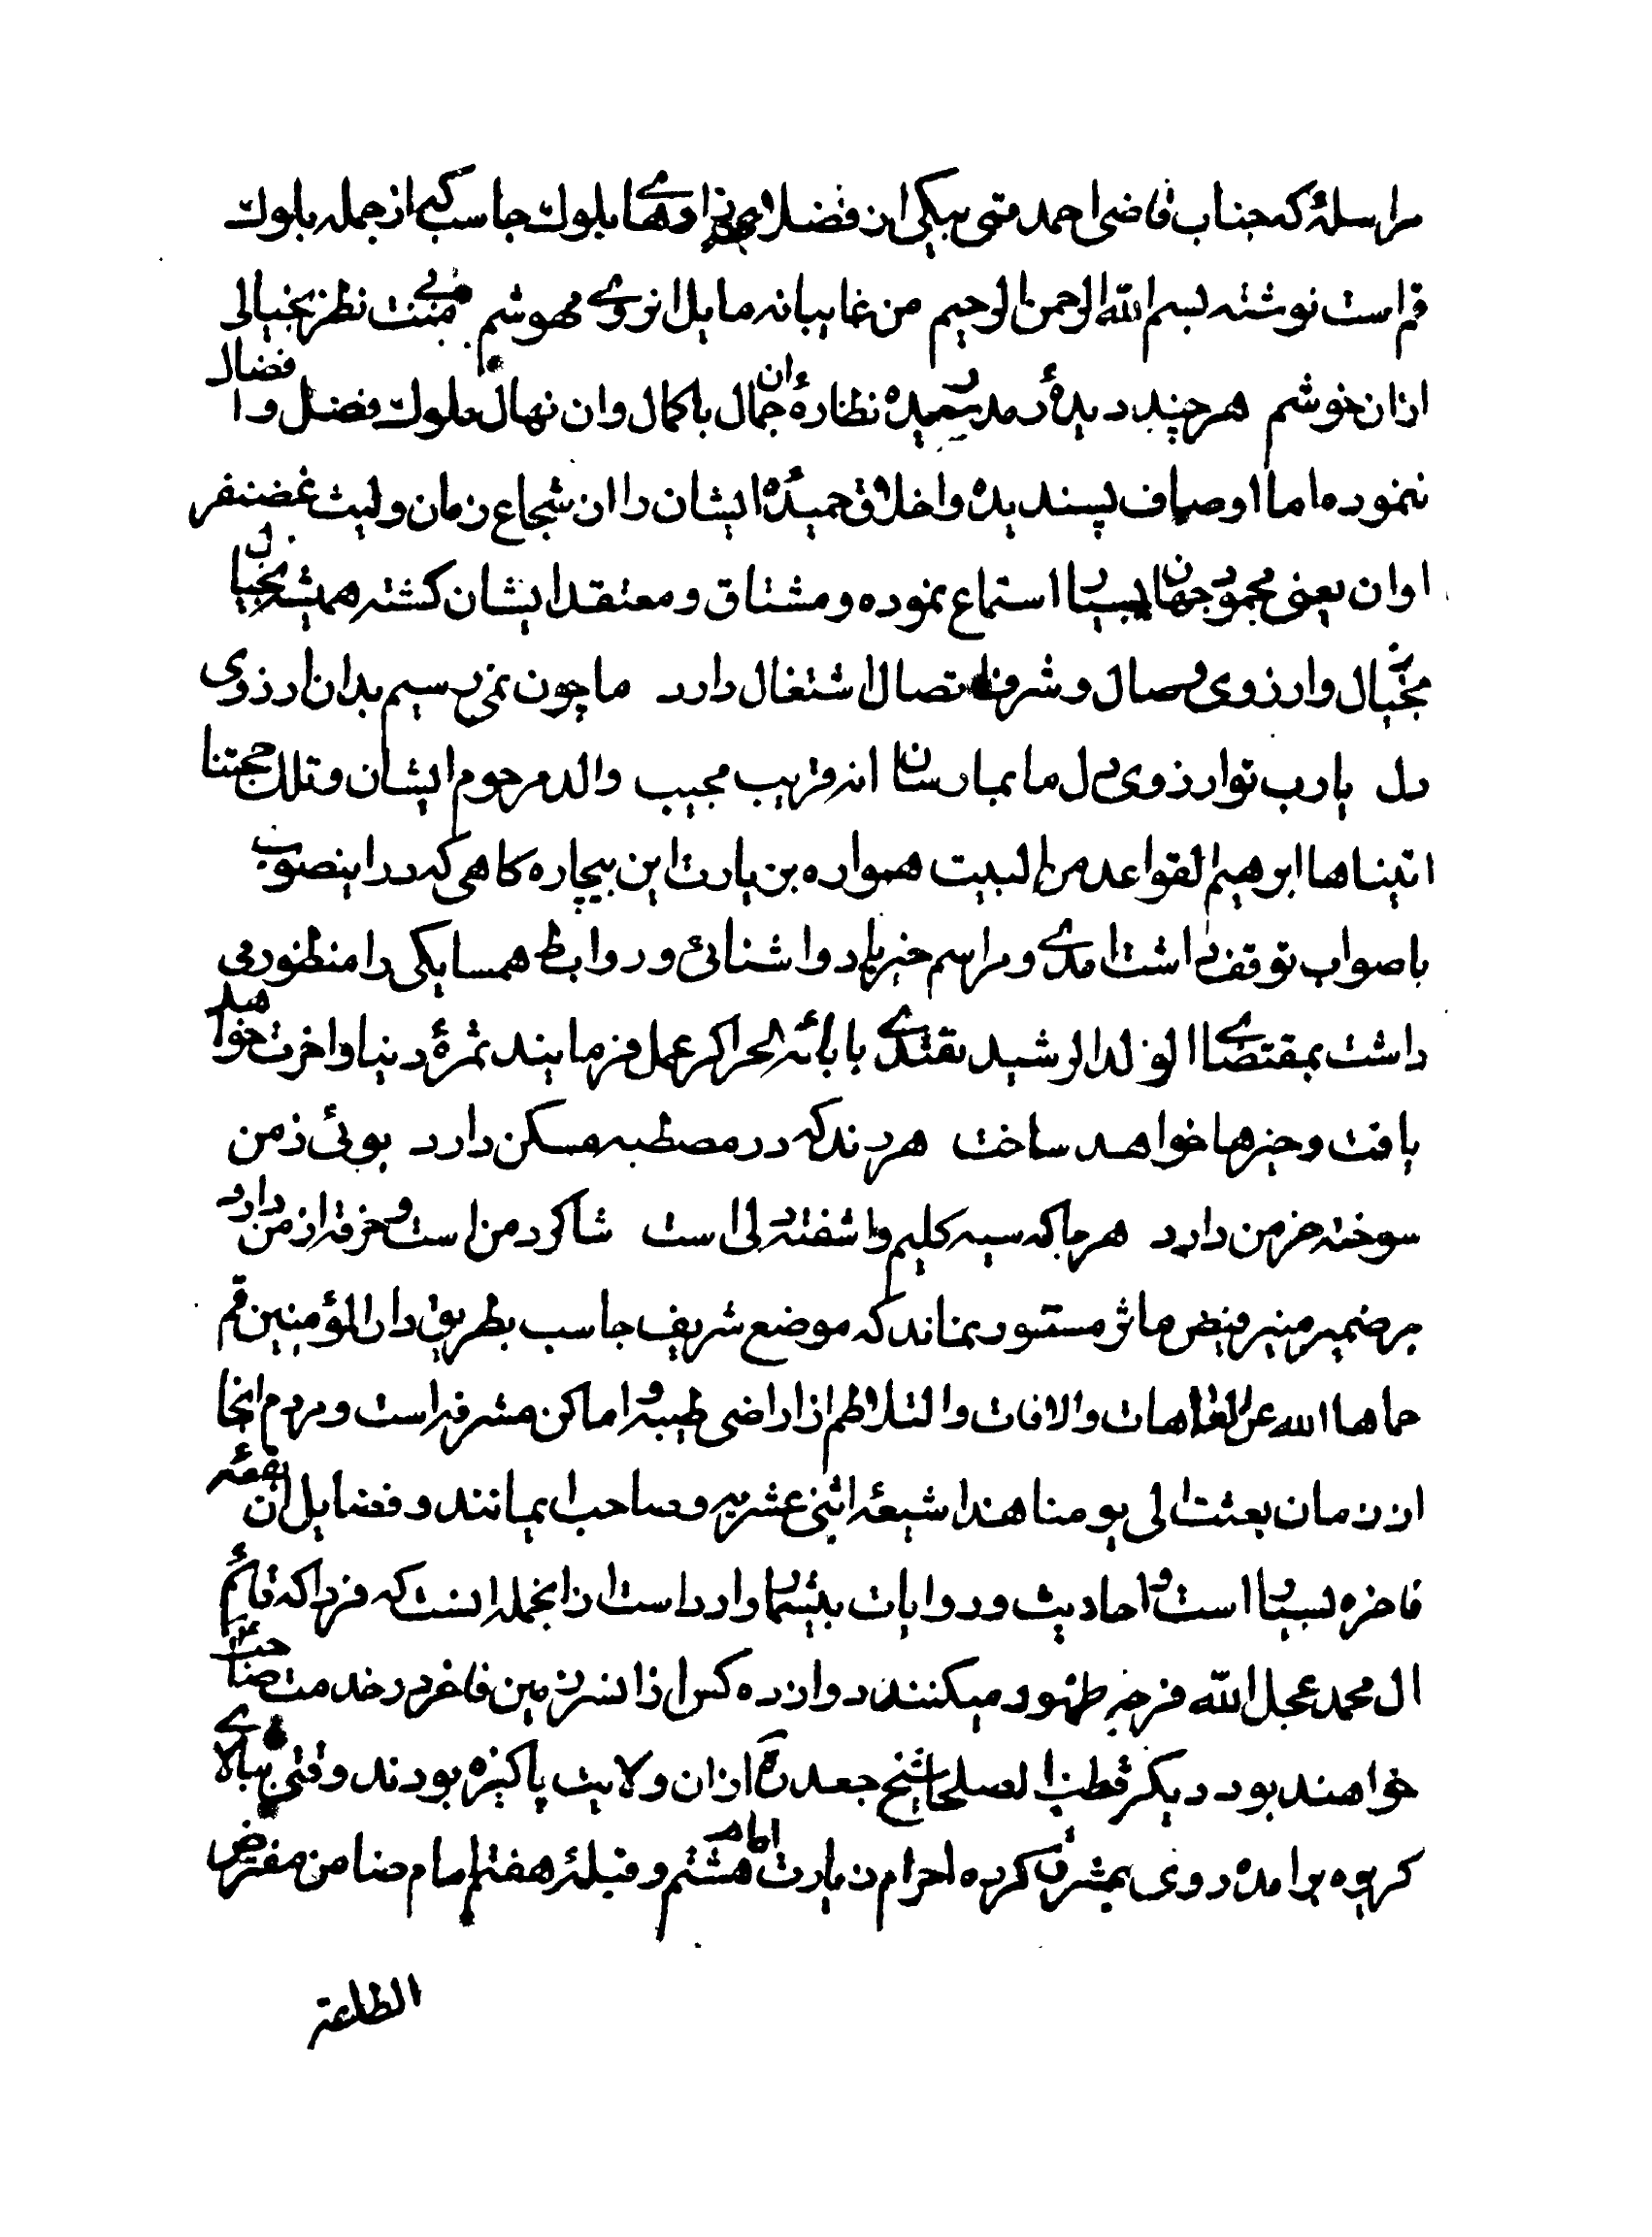 مراسلۀ که جناب قاضی احمد قمی بیکی از فضلای بلوک جاسب که از جمله بلوک
قم است نوشته بسم الله الرحمن الرحیم من غایبانه مایل ان روی مهوشم منت نظر بخیالی
ازان خوشم هر چند دیدۀ رمد نظاره ان جمال باکمال وان نهال ملوک فضل و افضال
ننموده اما اوصاف پسندیده واخلاق حمیدۀ ایشان را ان شجاع زمان ولیث غضنفر
اوان یعنی محمود جهان بسیار استماع نموده و مشتاق و معتقد ایشان کشته همیشه بخیال
بخیال وارزوی وصال و شرف اتصال اشتغال دارد ما چون نمی رسیم بدان ارزوی
دل یارب تو ارزوی دل ما بما رسان انه قریب مجیب والد مرحوم ایشان وتلک حجتنا
اتیناها ابرهیم القواعد من البیت همواره بزیارت این بیچاره کاهی که در اینصوب
باصواب توقف داشت امدی ومراسم خیرباد واشنائی وروابط همسایکی را منظور می
داشت بمقتضای الولد الرشید یقتدی بابائه الحر اکر عمل فرمایند ثمرۀ دنیا واخرت خواهد
یافت وخیرها خواهد ساخت هر رند که در مصطبه مسکن دارد بوئی ز من
سوخته خرمن دارد هر جا که سیه کلیم واشفته دلی است شاکرد من است وخرقه از من دارد
بر ضمیر منیر فیض ماثر مستور نماند که موضع شریف جاسب بطریق دار المؤمنین قم
حماها الله عن العاهات والافات والتلاطم از اراضی طیبه واماکن مشرفه است ومردم انجا
از زمان بعثت الی یومنا هذا شیعۀ اثنی عشریه وصاحب ایمانند وفضایل ان بقعۀ
فاخره بسیار است واحادیث وروایات بیشمار وارد است ازانجمله انست که فردا که قائم
ال محمد عجل الله فرجه ظهور میکنند دوازده کس از انسرزمین فاخر در خدمت حضرت
خواهند بود دیکر قطب الصلحا شیخ جعده ازان ولایت پاکیزه بودند وقتی ببالای
کریوه برامده روی بمشرق کرده احرام زیارت امام هشتم وقبلۀ هفتم امام ضامن مفترض
الطاعة